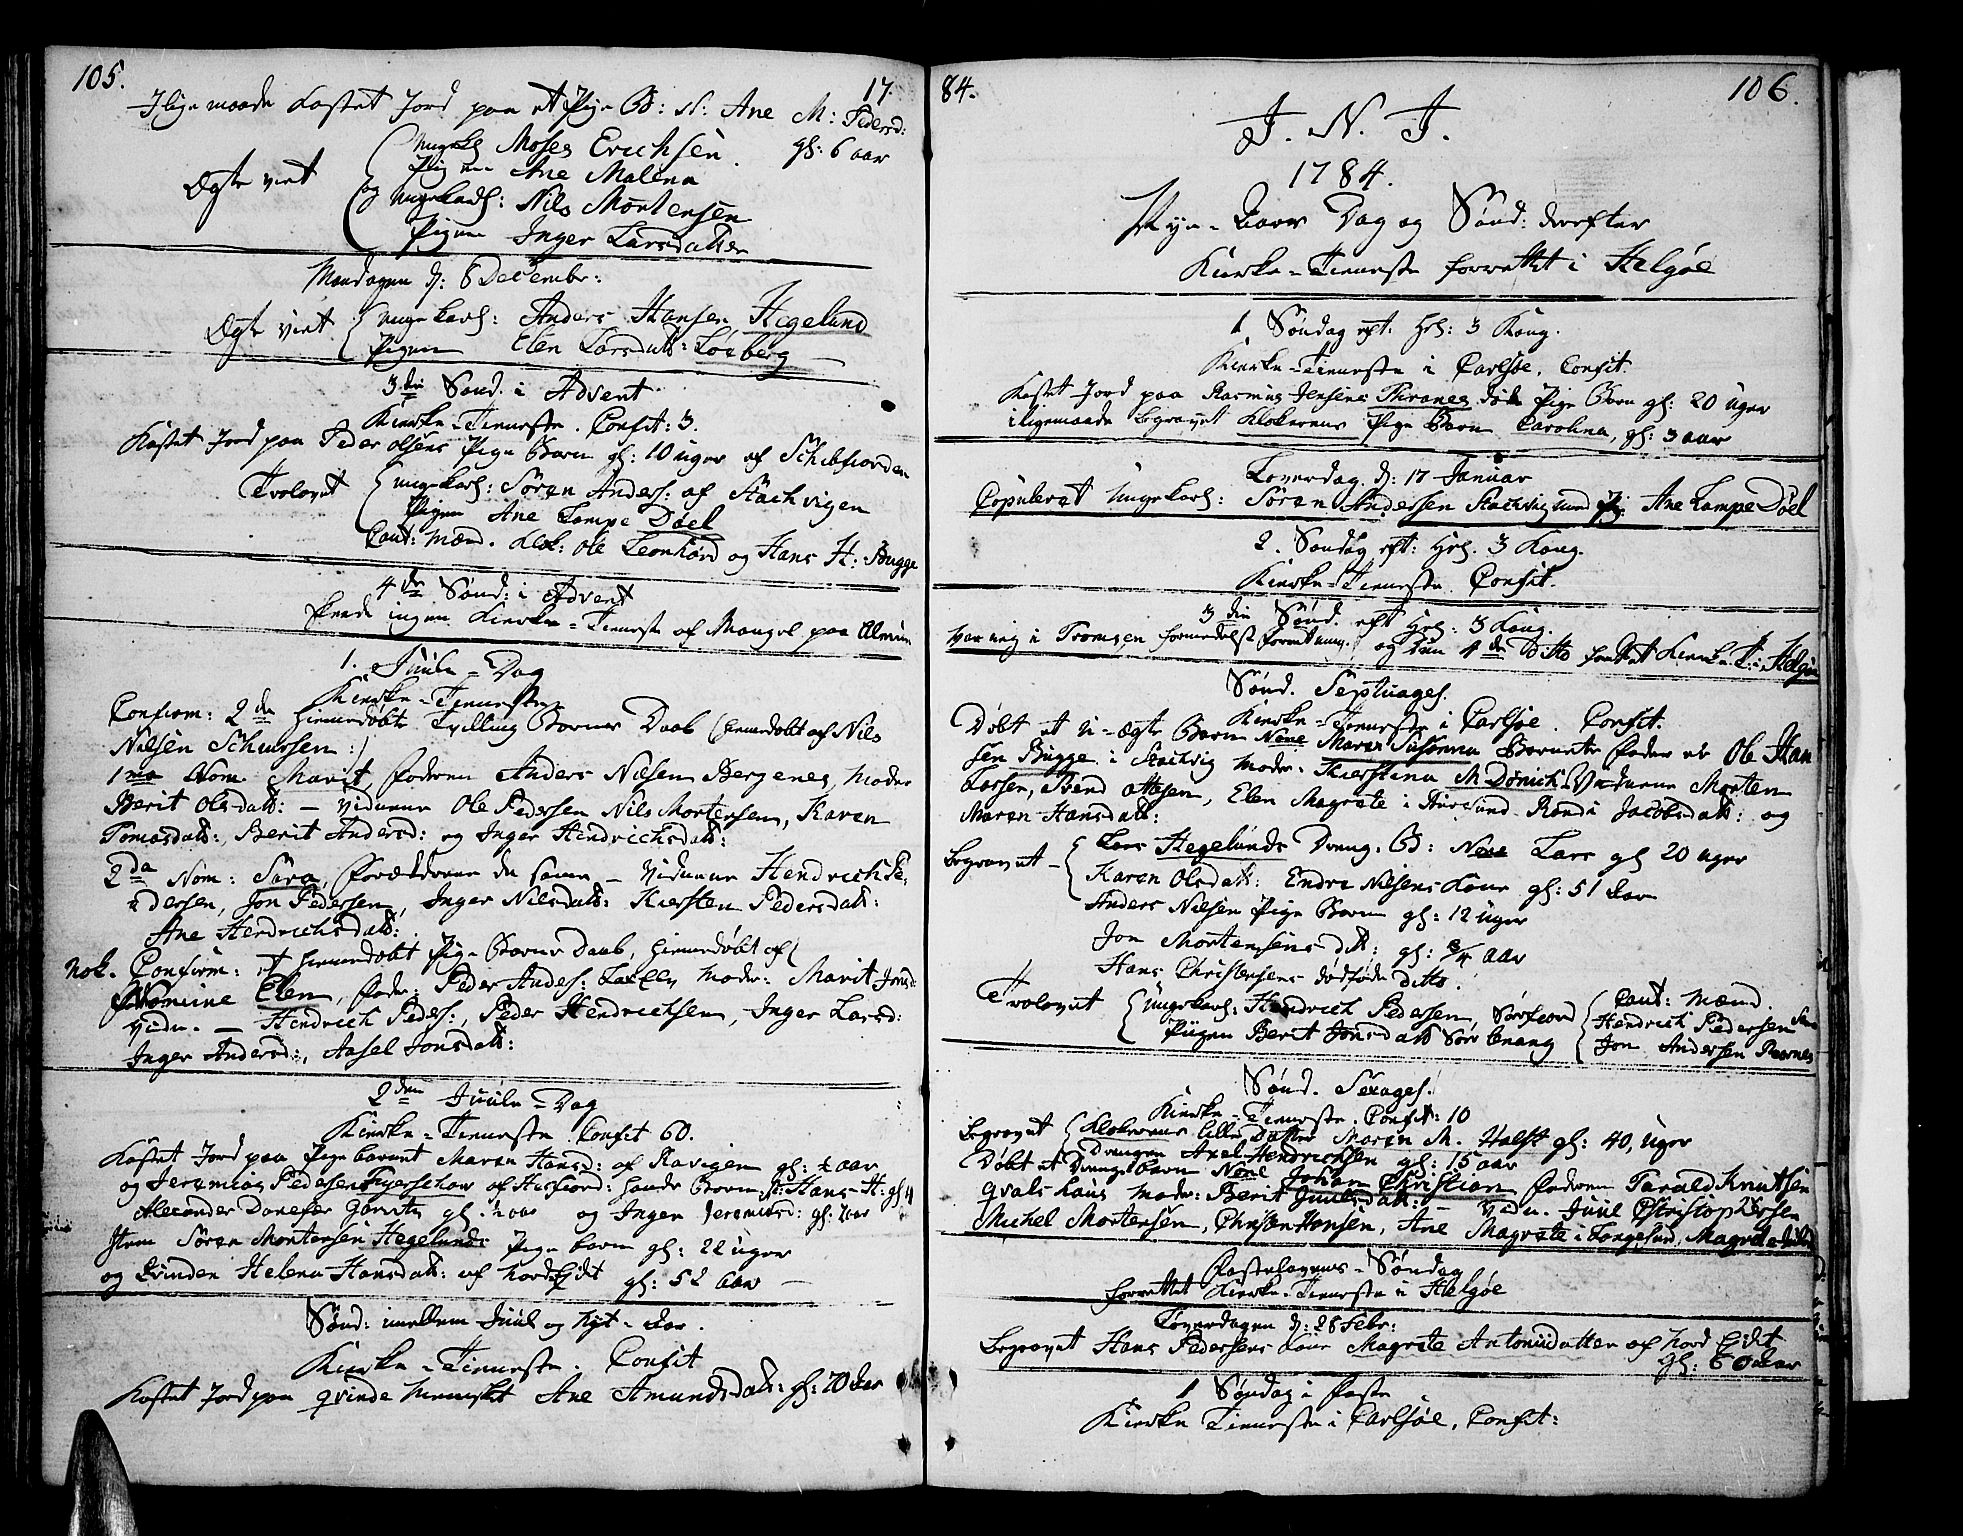 105.
17
Ilige maade Kastet Jord paa et Pige B: N: Ane M: Pedersd:
gl: 6 aar
Ungk: Moses Erichsen.
Pigen Ane Malena
Ægte viet
og Ungekarl: Nils Mortensen
Pigen Inger Larsdatter
Mandagen d: 8 Decembr:
Ægte viet Ungekarl: Anders Hansen Hegelund
Pigen Elen Larsdatt: Løxberg
3die Sønd: i Advent
Kierke-Tieneste. Confit: 3.
Kastet Jord paa Peder Olsens Pige Barn gl: 10 uger af Schibfiorden
Trolovet Ungekarl: Søren Anders: af Stachvigen
Pigen Ane Lampe Døel
Caut: Mænd. Klok: Ole Leonhard og Hans H: Bugge
4de Sønd: i Advent
skeede ingen Kierke-Tieneste af Mangel paa Almue
1. Juule-Dag
Kierke-Tieneste
Confirm: 2de hiemedøbte Tvilling Børns Daab (hiemedøbt af Nils
Nilsen Schursen:)
1ma Nom. Marit, Faderen Anders Nilsen Bergenes, Moder
Berit Olsdatt: - Vidnerne Ole Pedersen Nils Mortensen, Karen
Tomasdatt:, Berit Andersd: og Inger Hendrichsdatt:
2da Nom: Sara, Forældrene de samme - Vidnerne Hendrich Pe-
dersen, Jon Pedersen, Inger Nilsdatt: Kiersten Pedersdatt:
Ane Hendrichsdatt:
Nok. Confirm: et hiemedøbt Pige Barns Daab, hiemedøbt af (
Nomine Elen, Fader: Peder Anders: Moder: Marit Jonsd:
Vidn. - Hendrich Peders:, Peder Hendrichsen, Inger Larsd:
Inger Andersd:, Aasel Jonsdatt:
2den Juule-Dag
Kierke-Tieneste. Confit 60.
Kastet Jord paa Pige barnet Maren Hansd: af Ravigen gl: ½ aar
og Jeremias Pedersen af hands Børn Hans H: gl 4
Alexander gl. ½ aar og Inger Jeremiasd: gl: 2 aar
Item Søren Mortensen Hegelunds Pige barn gl: 22 uger
og Qvinden Helena Hansdatt: af Nordfidt gl: 52 aar -
Sønd: imellem Juul og Nyt-Aar.
Kierke-Tieneste. Confit
Kastet Jord paa qvinde Mennisket Ane Amundsdatt: gl: 70 Aar
84.
106.
I. N. J.
1784.
Nye-Aars Dag og Sønd: derefter
Kierke-Tieneste forrettet i Helgøe
1 Søndag eft: Hel: 3 Kong.
Kierke-Tieneste i Carlsøe, Confit.
Kastet Jord paa Rasmus Jensens Thranes døde Pige Barn gl: 20 uger
iligemaade begravet Klokerens Pige Barn Carolina, gl: 3 aar
Løverdag d: 17 Januar
Copuleret Ungekarl: Søren Andersen Stachvig med Pig: Ane Lampe Døel
2. Søndag eft: Hel. 3 Kong.
Kierke-Tieneste Confit.
3die Sønd. eft Hel: 3 Kong.
var ieg i Tromsen formedelst Forretning. og den 4de Ditto forrettet Kierke-T: i Helgøe
Sønd. Septuages.
Kierke-Tieneste i Carlsøe. Confit.
Døbt et U-ægte Barn Nome Maren Susanna Barnets Fader er Ole Han
sen Bugge i Stachvig Moder. Kierstena M. Dønich Vidnerne Morten
Larsen, Arend Ottesen, Elen Magrete i Randi Jacobsdatt: og
Maren Hansdatt:
Begravet - Lars Hegelunds Dreng. Bd: Nome Lars gl 20 uger
Karen Olsdatt: Endre Nilsens Kone gl: 51 Aar
Anders Nilsen Pige Barn gl: 12 uger
Jon Mortensens ditt: gl: ¾ aar
Hans Christensens dødføde Ditto.
Trolovet Ungekarl: Hendrich Pedersen, Sørfiord
Pigen Berit Jonsdatt Sør Lenang
Caut: Mænd.
Hendrich Pedersen
Jon Andersen
Sønd. Sexages.
Kierke-Tieneste. Confit: 10
Begravet Klokerens lille Datter Maren M. Halst gl: 40, uger
Drengen Axel Hendrichsen gl: 15 aar
Døbt et Drenge barn Nome Johan Christian Faderen Tarald Knutsen
Moder: Berit Juulsdatt: - Vidn. Juul Christophersen
Michel Mortensen, Christen Hansen, Ane Magrete i Langesund, Magrete
Fastelavens-Søndag
forrettet Kierke-Tieneste i Helgøe
Løverdagen d: 28 Febr:
Begravet Hans Pedersens Kone Magrete Antoniidatter af Nord Eidet
gl: 60 Aar
1 Søndag i Faste
Kierke Tieneste i Carlsøe, Confit: